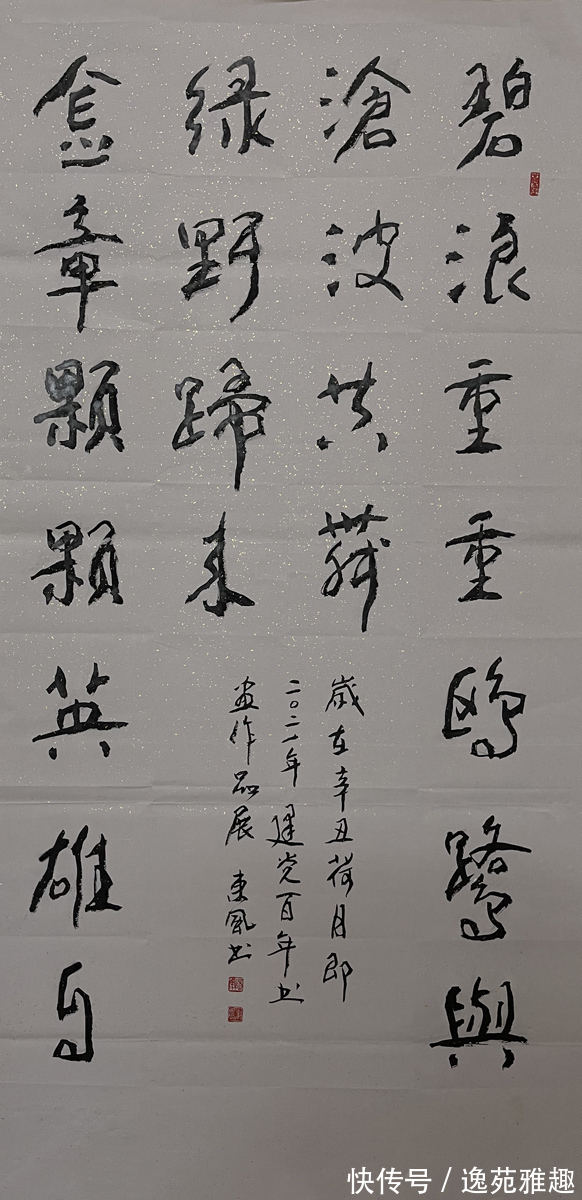 碧浪重重鷗鷺與
滄波共舞
金章顆顆英雄自
绿野歸来
歲在辛丑荷月即
二〇二一年建党百年书
画作品展 東風书
快传号 / 逸苑雅趣